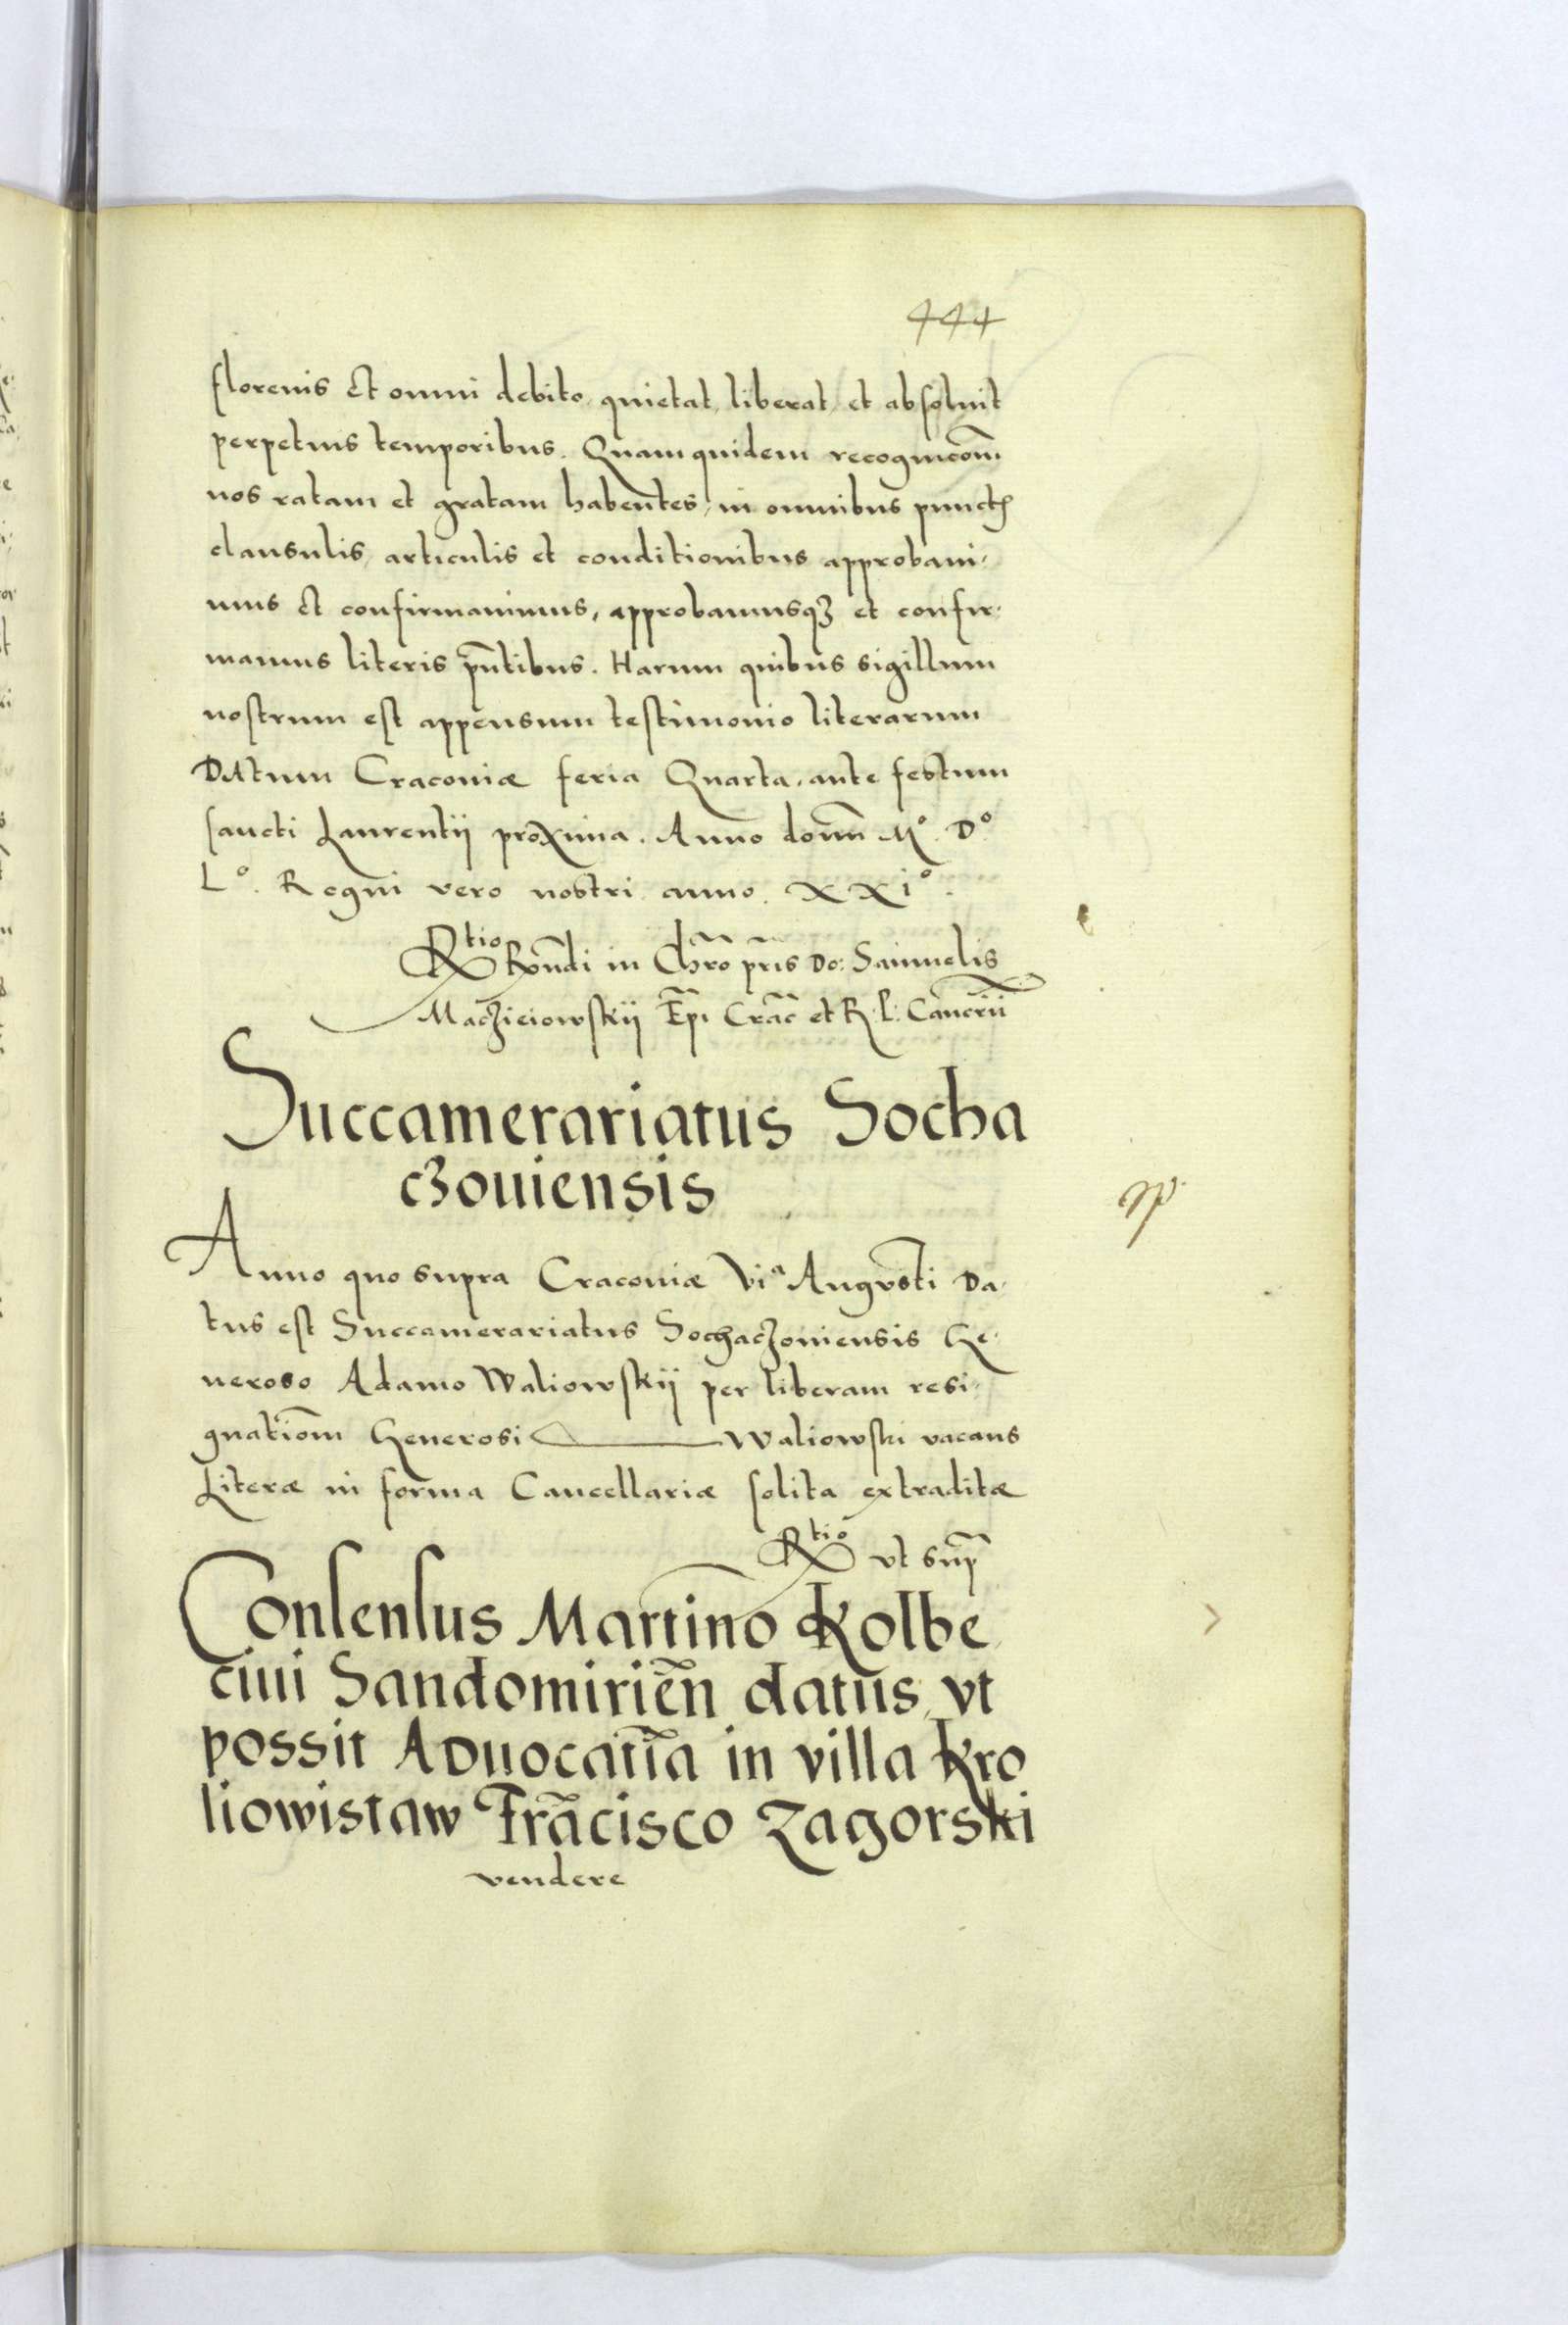 444
florenis et omni debito quietat, liberat, et absoluit
perpetuis temporibus. Quam quidem recognicom̃
nos ratam et gratam habentes, in omnibus punctꝭ
clausulis, articulis et conditionibus approbaui-
mus et confirmauimus, approbamusqꝫ et confir-
mamus literis pñtibus. Harum quibus sigillum
nostrum est appensum testimonio literarum
DAtum Cracouiæ feria Quarta ante festum
sancti Laurentij proxima. Anno domĩ Mº. Dº.
Lº. Regni vero nostri anno. XXiº.
Rtio Rñdi in Chrõ pr̃is Do: Samuelis
Maczieiowskij Ep̃i Crac̃ et R. P. Cancrĩi
Succamerariatus Socha
cʒouiensis
Anno quo supra Cracouiæ Viª Augusti Da-
tus est Succamerariatus Sochaczouiensis Ge-
neroso Adamo Waliowskij per liberam resi-
gnatiom̃ Generosi Waliowski vacans
Literæ in forma Cancellariæ solita extraditæ
Rtio vt sup̃
Consensus Martino Kolbe
ciui Sandomiriẽn datus, vt
possit Aduocatĩa in villa Kro
liowistaw Frãcisco Zagorski
vendere